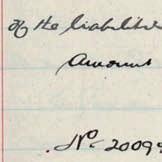 of the liabilitie
Amount
No 2009